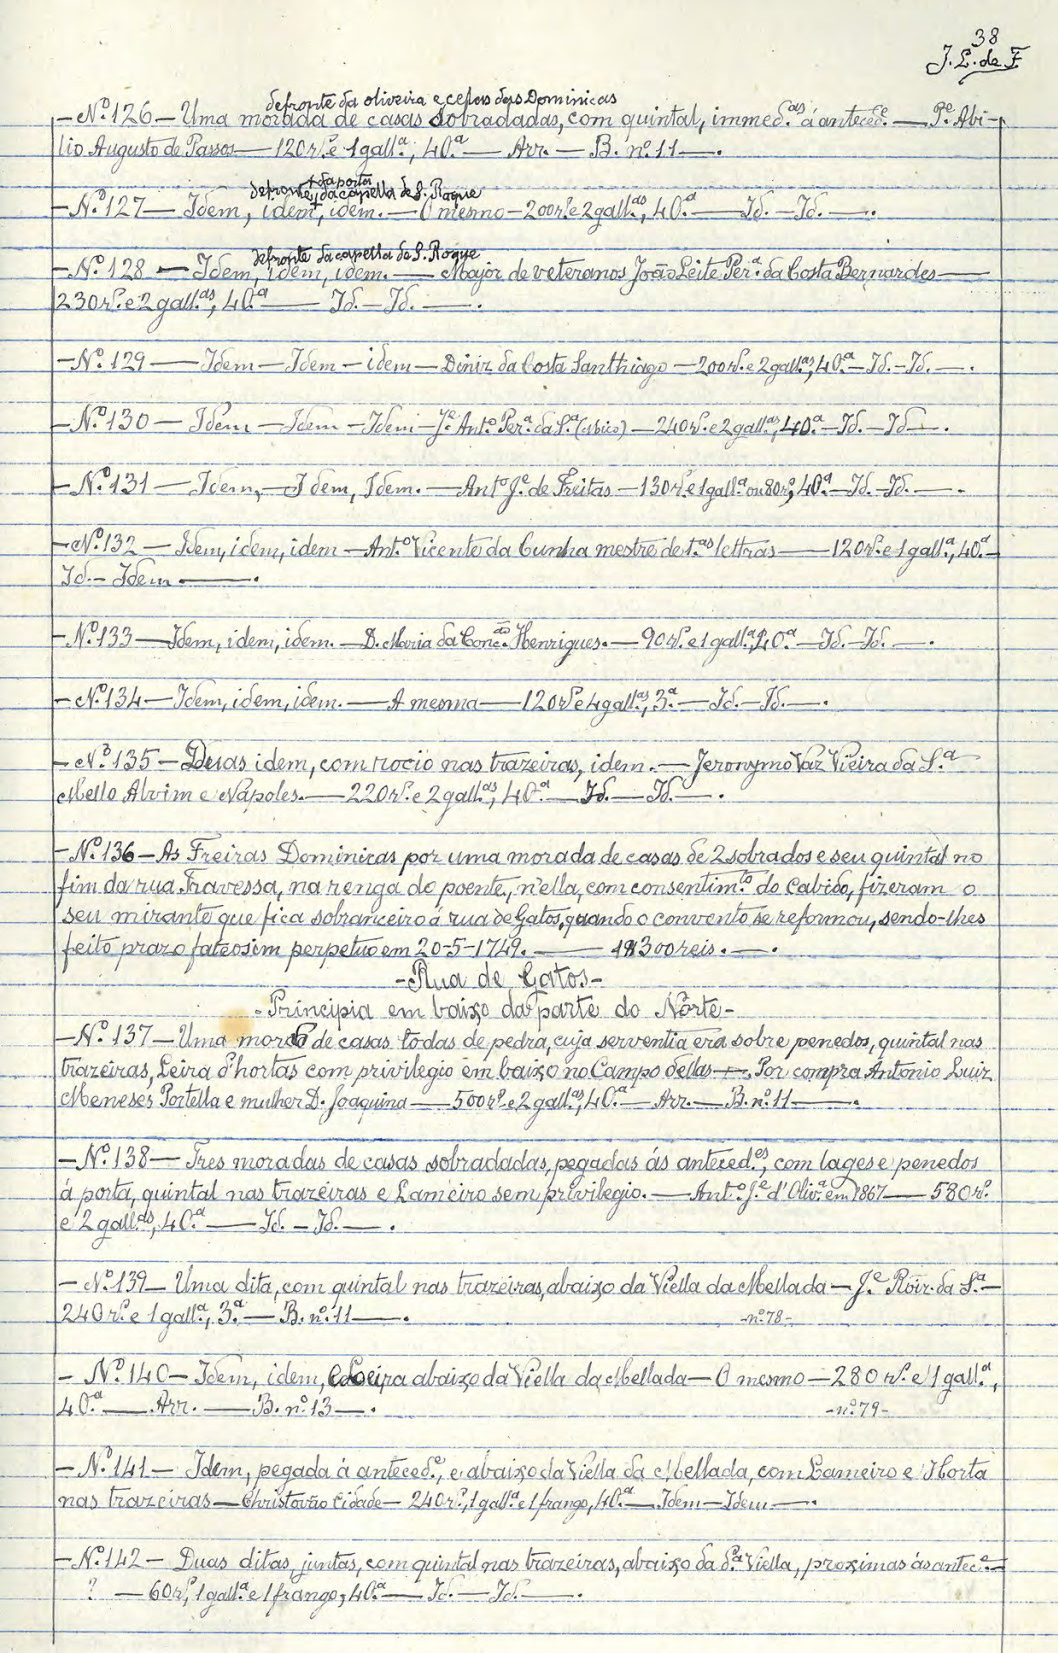 38
J. L. de F.
defronte da oliveira e cêpas das Dominicas
- Nº 126 - Uma morada de casas sobradadas, com quintal, immed.as á anteced.e - P.e Abi-
lio Augusto de Passos - 120 r.s e 1 gall.a, 40.a - Arr. - B. nº 11 -.
+ da porta
defronte, da capella de S. Roque
- Nº 127 - Idem, idem, idem. - O mesmo - 200 r.s e 2 gall.as, 40.a - Id. - Id. -.
defronte da capella de S. Roque
- Nº 128 - Idem, idem, idem. - Major de veteranos João Leite Per.a da Costa Bernardes -
230 r.s e 2 gall.as, 40.a - Id. - Id. -.
- Nº 129 - Idem - Idem - idem - Diniz da Costa Santhiago - 200 r.s e 2 gall.as, 40.a - Id. - Id. -.
- Nº 130 - Idem - Idem - Idem - J.e Ant.o Per.a da S.a (ubico) - 240 r.s e 2 gall.as, 40.a - Id. - Id -.
- Nº 131 - Idem, - Idem, Idem. - Ant.o J.e de Freitas - 130 r.s e 1 gall.a ou 80 r.s, 40.a - Id. - Id. -.
- Nº 132 - Idem, idem, idem - Ant.o Vicente da Cunha mestre de 1.as lettras - 120 r.s e 1 gall.a, 40.a -
Id. - Idem -.
- Nº 133 - Idem, idem, idem. - D. Maria da Conc.ão Henriques. - 90 r.s e 1 gall.a, 40.a - Id. - Id. -.
- Nº 134 - Idem, idem, idem. - A mesma - 120 r.s e 4 gall.as, 3.a - Id. - Id. -.
- Nº 135 - Duas idem, com rocio nas trazeiras, idem. - Jeronymo Vaz Vieira da S.a
Mello Alvim e Napoles. - 220 r.s e 2 gall.as, 40.a - Id. - Id. -.
- Nº 136 - As Freiras Dominicas por uma morada de casas de 2 sobrados e seu quintal no
fim da rua Travessa, na renga do poente, n'ella, com consentim.to do Cabido, fizeram o
seu mirante que fica sobranceiro á rua de Gatos, quando o convento se reformou, sendo-lhes
feito prazo fateosim perpetuo em 20-5-1749. - 1$300 reis. -.
- Rua de Gatos -
- Principia em baixo da parte do Norte -
- Nº 137 - Uma morada de casas todas de pedra, cuja serventia era sobre penedos, quintal nas
trazeiras, Leira d'hortas com privilegio em baixo no Campo dellas - Por compra Antonio Luiz
Meneses Portella e mulher D. Joaquina - 500 r.s e 2 gall.as, 40.a - Arr. - B. nº 11 -.
- Nº 138 - Tres moradas de casas sobradadas, pegadas ás anteced.es, com lages e penedos
á porta, quintal nas trazeiras e Lameiro sem privilegio. - Ant.o J.e d'Oliv.a em 1867 - 580 r.s
e 2 gall.as, 40.a - Id. - Id. -.
- Nº 139 - Uma dita, com quintal nas trazeiras, abaixo da Viella da Mellada - J.e Roir. da S.a -
240 r.s e 1 gall.a, 3.a - B. nº 11 -. - nº 78 -
- Nº 140 - Idem, idem, e Leira abaixo da Viella da Mellada - O mesmo - 280 r.s e 1 gall.a,
40.a - Arr. - B. nº 13 -. - nº 79 -
- Nº 141 - Idem, pegada á anteced.e, e abaixo da Viella da Mellada, com Lameiro e Horta
nas trazeiras - Christovão Cidade - 240 r.s, 1 gall.a e 1 frango, 40.a - Idem - Idem -.
- Nº 142 - Duas ditas, juntas, com quintal nas trazeiras, abaixo da d.a Viella, proximas ás antec.e -
? - 60 r.s, 1 gall.a e 1 frango, 40.a - Id. - Id. -.